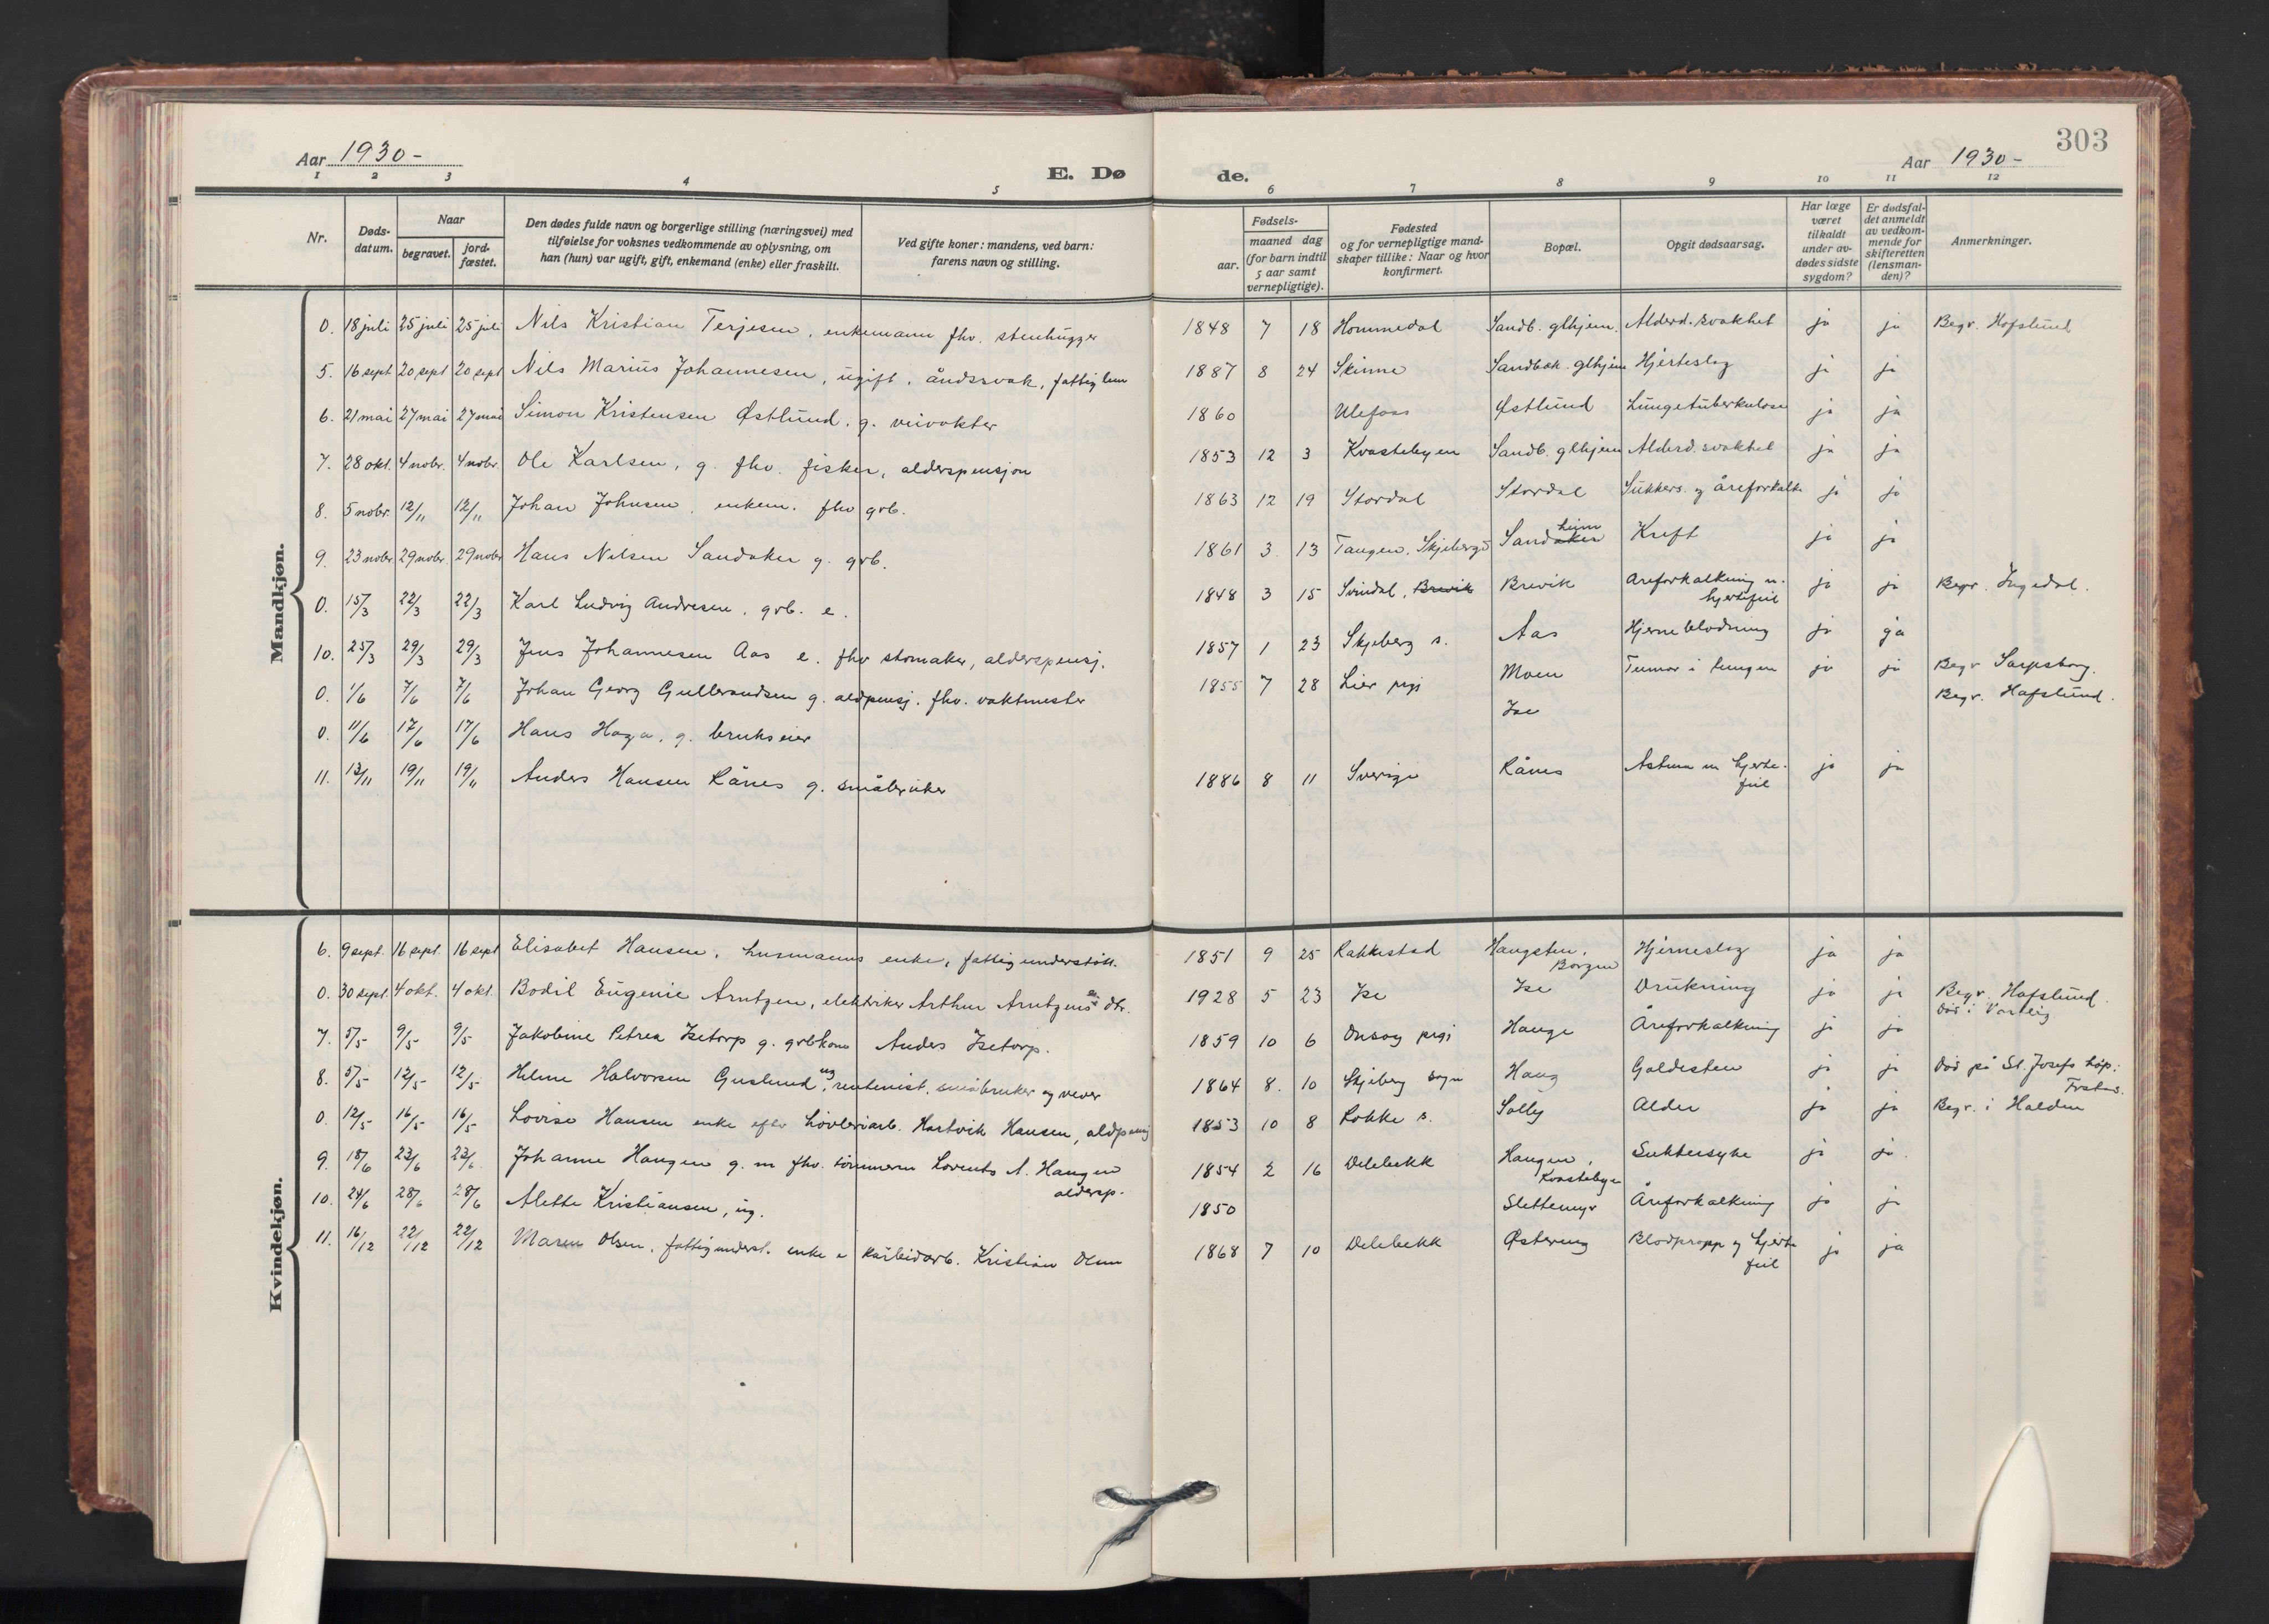 303
Aar 1930-
E. Dø
de.
Aar 1930-
1 2 3 4 5 6 7 8 9 10 11 12
Nr.
Døds-
datum.
Naar
begravet.
jord-
fæstet.
Den dødes fulde navn og borgerlige stilling (næringsvei) med
tilføielse for voksnes vedkommende av oplysning, om
han (hun) var ugift, gift, enkemand (enke) eller fraskilt.
Ved gifte koner: mandens, ved barn:
farens navn og stilling.
Fødsels-
aar.
maaned dag
(for barn indtil
5 aar samt
vernepligtige).
Fødested
og for vernepligtige mand-
skaper tillike: Naar og hvor
konfirmert.
Bopæl.
Opgit dødsaarsag.
Har læge
været
tilkaldt
under av-
dødes sidste
sygdom?
Er dødsfal-
det anmeldt
av vedkom-
mende for
skifteretten
(lensman-
den)?
Anmerkninger.
Mandkjøn.
0. 18 juli 25 juli 25 juli Nils Kristian Terjesen, enkemann fhv. stenhugger 1848 7 18 Hommedal Sandb. glhjem. Alderd. svakhet ja ja Begr. Hafslund
5. 16 sept 20 sept 20 sept Nils Marius Johannesen, ugift, åndssvak, fattiglem 1887 8 24 Skinne Sandbak. glhjem Hjerteslag ja ja
6. 21 mai 27 mai 27 mai Simon Kristensen Østlund, g. veivokter 1860 Ulefoss Østlund Lungetuberkulose ja ja
7. 28 okt. 4 nobr. 4 nobr. Ole Karlsen, g. fhv. fisker, alderspensjon 1853 12 3 Kvastebyen Sandb. glhjem Alderd. svakhet ja ja
8. 5 nobr. 12/11 12/11 Johan Johnsen, enkem. fhv grb. 1863 12 19 Stordal Stordal Sukkers. og åreforkalk. ja ja
9. 23 nobr. 29 nobr. 29 nobr Hans Nilsen Sandaker g. grb. 1861 3 13 Tangen, Skjeberg s Sandaker heim Kreft ja ja
0. 15/3 22/3 22/3 Karl Ludvig Andresen, grb. e. 1848 3 15 Svindal, Brevik Brevik Areforkalkning m. hjertefeil ja ja Begr. Ingedal.
10. 25/3 29/3 29/3 Jens Johannesen Aas e. fhv skomaker, alderspensj. 1857 1 23 Skjeberg s. Aas Hjerneblødning ja ja
0. 1/6 7/6 7/6 Johan Georg Gulbrandsen g. aldpensj. fhv. vaktmester 1855 7 28 Lier prgj Moen Tumor i lungen ja ja Begr Sarpsborg.
0. 11/6 17/6 17/6 Hans Haga, g. brukseier Ise Begr. Hafslund.
11. 13/11 19/11 19/11 Anders Hansen Rånes g. småbruker 1886 8 11 Sverige Rånes Astma m hjerte- feil ja ja
Kvindekjøn.
6. 9 sept. 16 sept. 16 sept Elisabet Hansen, husmanns enke, fattigunderstøtt. 1851 9 25 Rakkestad Haugsten, Borgen Hjerneslag ja ja
0. 30 sept. 4 okt. 4 okt. Bodil Eugenie Arntzen, elektriker Arthur Arntzens dtr. 1928 5 23 Ise Ise Drukning ja ja Begr. Hafslund. Død i Varteig
7. 5/5 9/5 9/5 Jakobine Petrea Isetorp g. grbkone Anders Isetorp. 1859 10 6 Onsøy prgj Hauge Åreforkalkning ja ja
8. 5/5 12/5 12/5 Helene Halvorsen Guslund, ug rentenist, småbruker og vever 1864 8. 10 Skjeberg sogn Haug Galdesten ja ja Død på St. Josefs hosp. Frstad.
0. 12/5 16/5 16/5 Lovise Hansen enke efter høvleriarb. Hartvik Hansen, aldpensj 1853 10 8 Rokke s. Solby Alder ja ja Begr. i Halden
9. 18/6 23/6 23/6 Johanne Haugen g. m fhv. tømmerm Lorents A. Haugen aldersp. 1854 2 16 Delebekk Haugen, Kvastebyen Sukkersyke ja ja.
10. 24/6 28/6 28/6 Alette Kristiansen, ug. 1850 Slettemyr Åreforkalkning ja ja
11. 16/12 22/12 22/12 Maren Olsen, fattigunderst. enke e karbidarb. Kristian Olsen 1868 7 10 Delebekk Østereng Blodpropp og hjerte feil ja ja